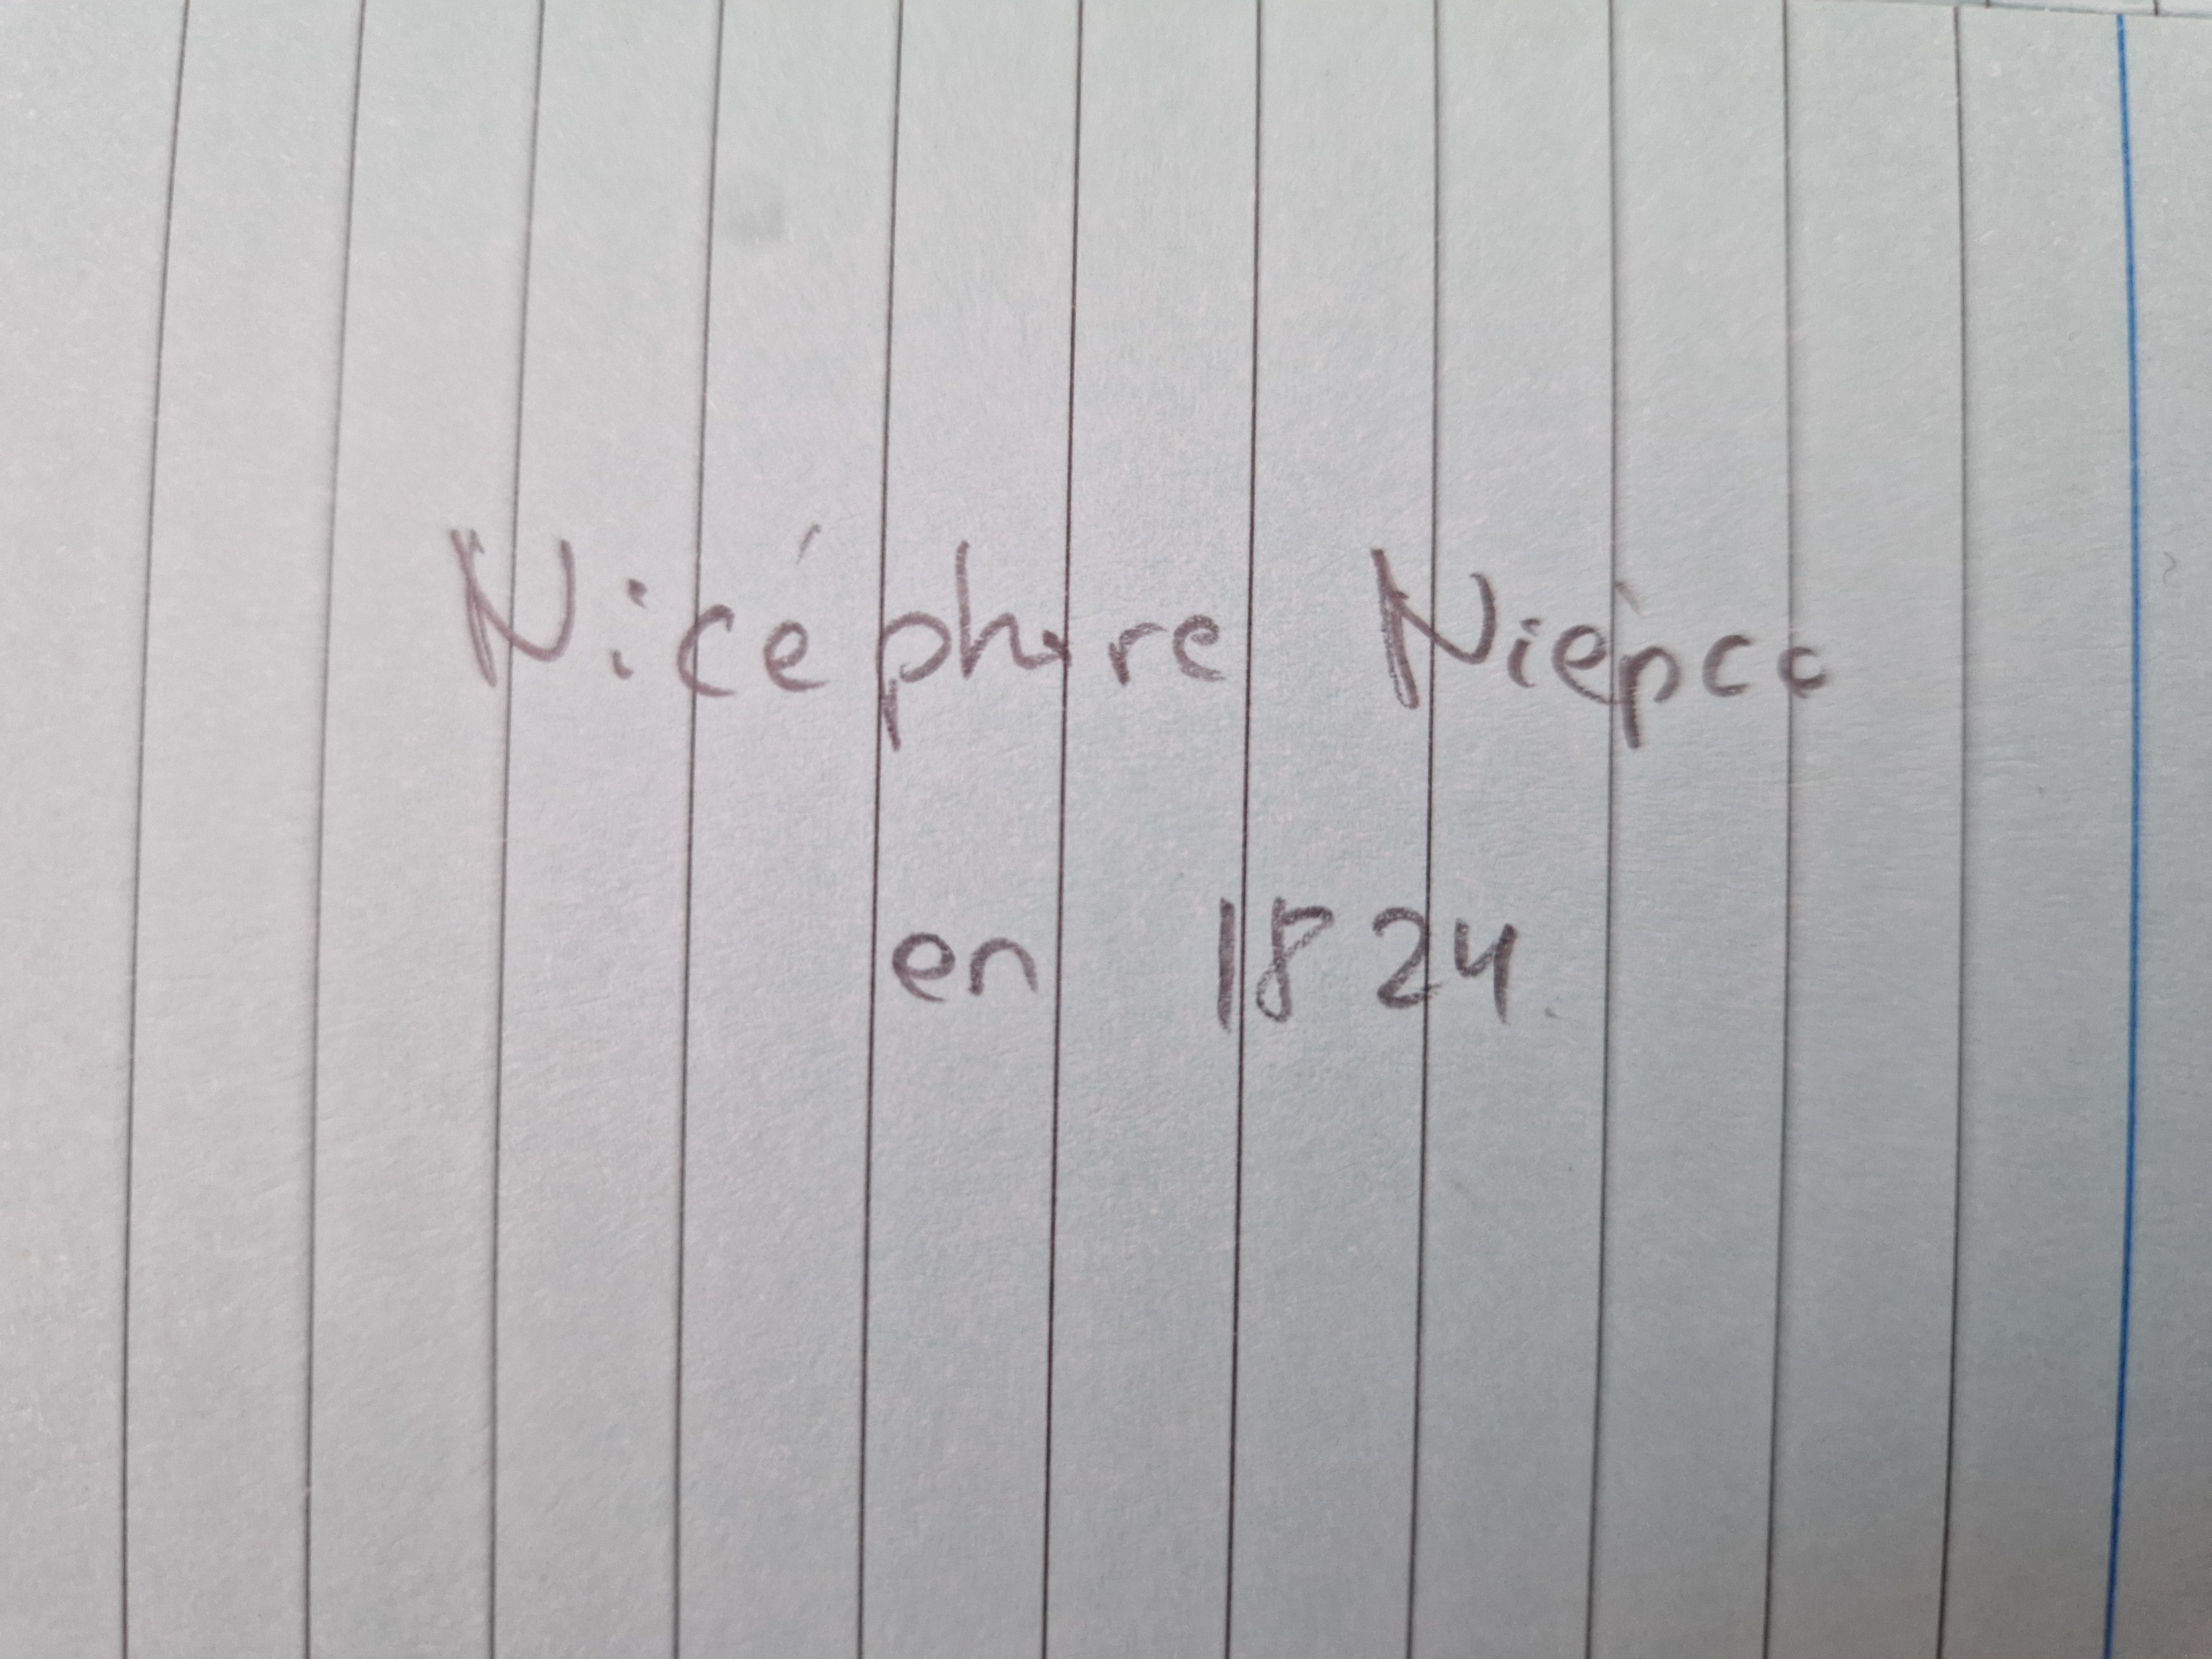 Nicéphure Niépce
en 1824